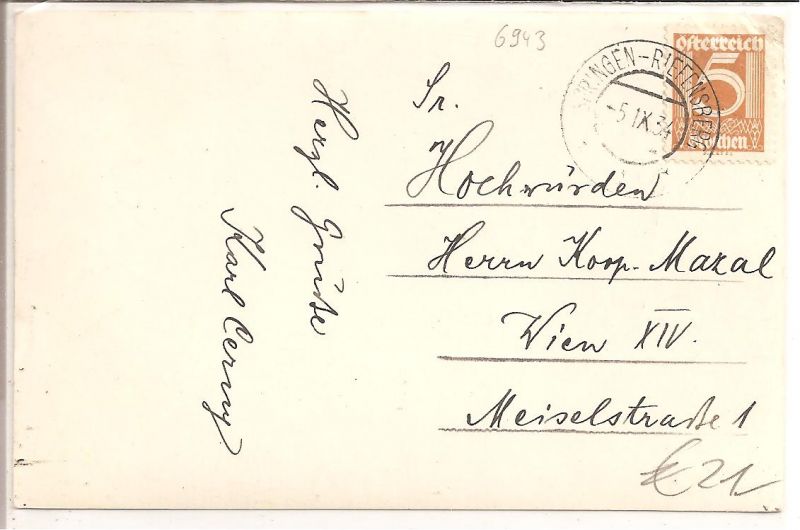 6943
Österreich
5
-5.IX.34
Herzl. Grüße
Karl Cerny
Sr.
Hochwürden
Herrn Koop. Mazal
Wien XIV.
Meiselstraße 1
€ 21